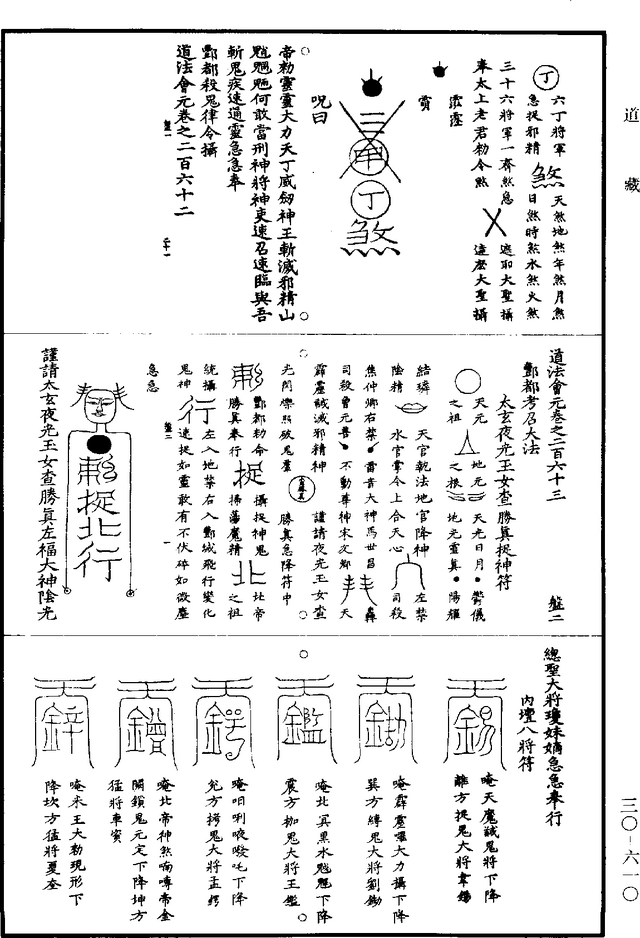 道藏
六丁將軍
急捉邪精
煞
天煞地煞年煞月煞
日煞時煞水煞火煞
三十六將軍一齊煞急
奉太上老君勑令煞
遮那大聖攝
這麼大聖攝
霐霳
賣
丁
煞
呪曰
帝勑靈靈大力天丁威劒神王斬滅邪精山
魈魍魎何敢當刑神將神吏速召速臨與吾
斬鬼疾速通靈急急奉
酆都殺鬼律令攝
道法會元卷之二百六十二
盤一
二十一
道法會元卷之二百六十三
盤二
酆都考召大法
太玄夜光玉女查勝真捉神符
天元
之祖
地元
之根
天光日月
地光靈真
鬱儀
陽耀
結璘
陰精
天官執法地官降神
水官掌令上合天心
左禁
司殺
焦仲卿右禁
雷音大神馬世昌
司殺曾元喜
不動尊神宋文卿
天
霹靂誠滅邪精神
謹請夜光玉女查
光閃爍照破鬼羣
勝真急降符中
酆都勑命
勝真奉行
捉
攝捉神鬼
掃蕩魔精
北
北帝
之祖
統攝
鬼神
行
左入地禁右入酆城飛行變化
速捉如靈敢有不伏碎如微塵
急急
盤二
一
捉北行
謹請太玄夜光玉女查勝真左福大神陰光
總聖大將瓊妹嫡急急奉行
內壇八將符
唵天魔誠鬼將下降
離方捉鬼大將韋錫
唵霹靂囉大力攝下降
巽方縛鬼大將劉鋤
唵北真黑水魈魍下降
震方枷鬼大將王鑑
唵咱唎㖡㗫吒下降
兌方拷鬼大將孟鍔
唵北帝神煞喃嚩帝金
開鎖鬼元定下降坤方
猛將車鑌
唵朱王大勑現形下
降坎方猛將夏𨧀
三〇-六一〇